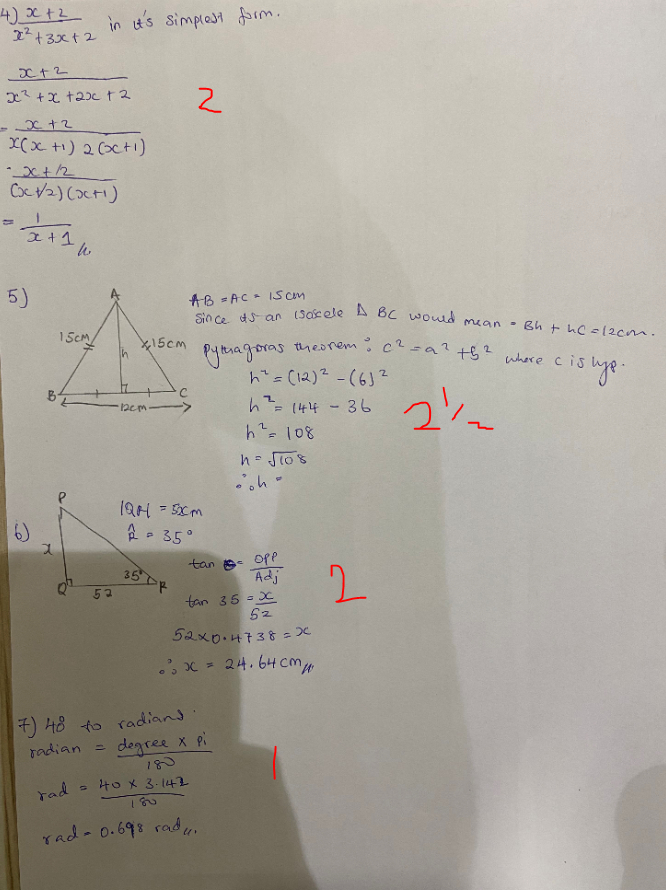 4) x+2 / x²+3x+2 in it's simplest form.
x+2 / x²+x+2x+2
2
= x+2 / x(x+1) 2(x+1)
= x+2 / (x+2)(x+1)
= 1 / x+1 //
5)
A
15cm
15cm
h
B
C
12cm
AB = AC = 15cm
Since its an isoscele Δ BC would mean = Bh + hC = 12cm.
Pythagoras theorem : c² = a² + b² where c is hyp.
h² = (12)² - (6)²
h² = 144 - 36
h² = 108
h = √108
∴ h =
2 1/2
6)
P
x
Q
52
35°
R
= 52cm
R̂ = 35°
tan = opp / Adj
tan 35 = x / 52
52 x 0.4738 = x
∴ x = 24.64cm //
2
7) 48 to radians
radian = degree x pi / 180
rad = 40 x 3.142 / 180
rad = 0.698 rad //.
1